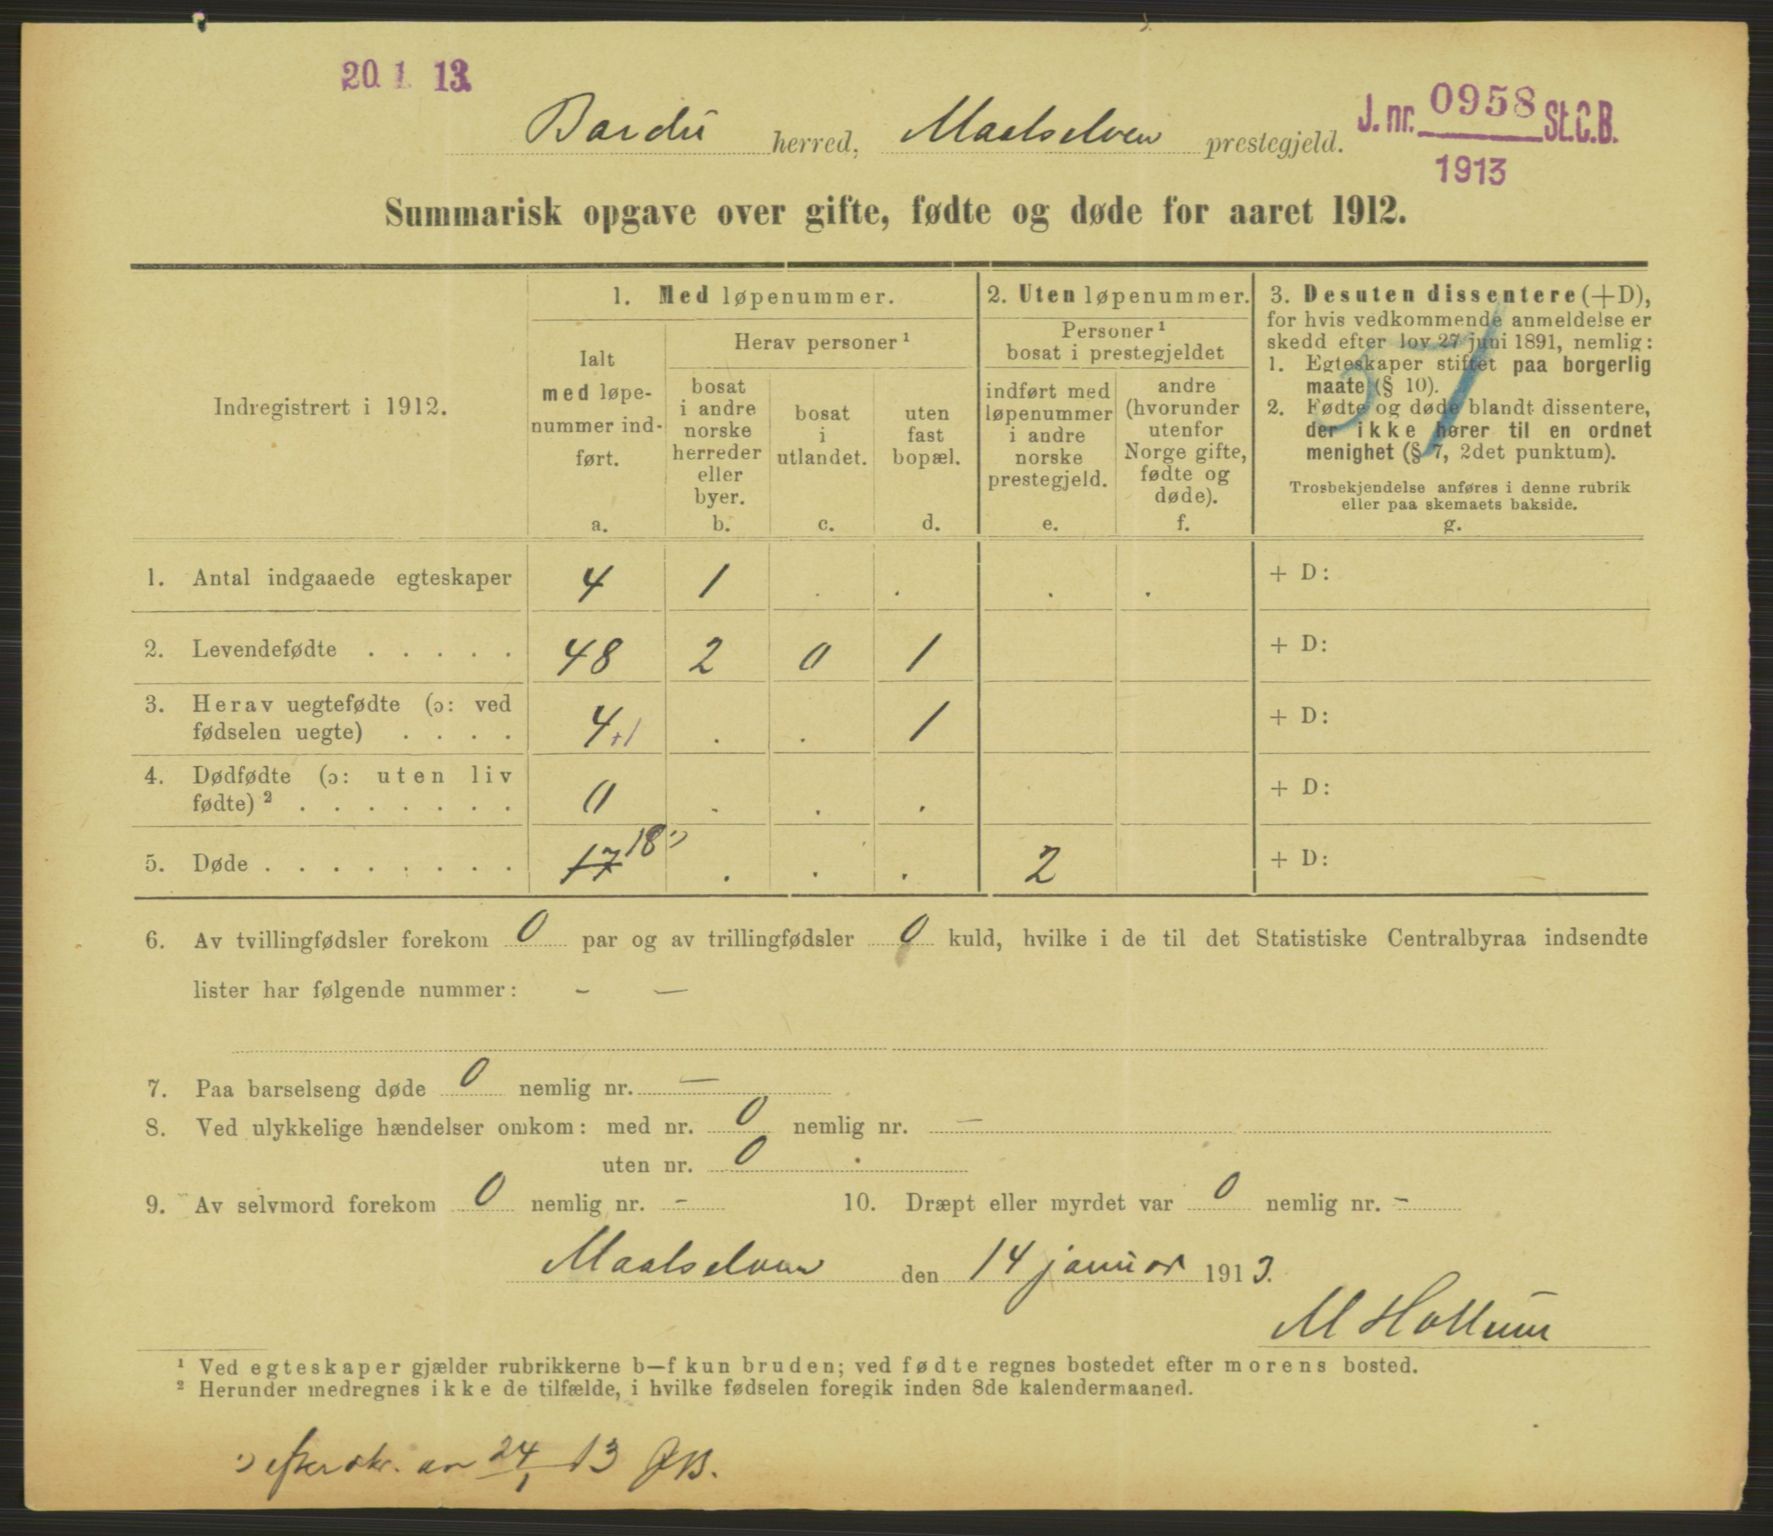 20. 1. 13.
J. nr. 0958 St.C.B.
1913
Bardu herred, Maalselven prestegjeld.
Summarisk opgave over gifte, fødte og døde for aaret 1912.
Indregistrert i 1912.
1. Med løpenummer.
Ialt
med løpe-
nummer ind-
ført.
a.
Herav personer ¹
bosat
i andre
norske
herreder
eller
byer.
b.
bosat
i
utlandet.
c.
uten
fast
bopæl.
d.
2. Uten løpenummer.
Personer ¹
bosat i prestegjeldet
indført med
løpenummer
i andre
norske
prestegjeld.
e.
andre
(hvorunder
utenfor
Norge gifte,
fødte og
døde).
f.
3. Desuten dissentere (+D),
for hvis vedkommende anmeldelse er
skedd efter lov 27 juni 1891, nemlig:
1. Egteskaper stiftet paa borgerlig
maate (§ 10).
2. Fødte og døde blandt dissentere,
der ikke hører til en ordnet
menighet (§ 7, 2det punktum).
Trosbekjendelse anføres i denne rubrik
eller paa skemaets bakside.
g.
1. Antal indgaaede egteskaper 4 1 . . . . + D:
2. Levendefødte . . . . . 48 2 0 1 + D:
3. Herav uegtefødte (ɔ: ved
fødselen uegte) . . . . 4+1 . . 1 + D:
4. Dødfødte (ɔ: uten liv
fødte) ² . . . . . . . 0 . . . + D:
5. Døde . . . . . . . . 17 18 ¹) . . . 2 + D:
6. Av tvillingfødsler forekom 0 par og av trillingfødsler 0 kuld, hvilke i de til det Statistiske Centralbyraa indsendte
lister har følgende nummer: – –
7. Paa barselseng døde 0 nemlig nr. –
8. Ved ulykkelige hændelser omkom: med nr. 0 nemlig nr. –
uten nr. 0 .
9. Av selvmord forekom 0 nemlig nr. – 10. Dræpt eller myrdet var 0 nemlig nr. –
Maalselven den 14 januar 1913.
¹ Ved egteskaper gjælder rubrikkerne b—f kun bruden; ved fødte regnes bostedet efter morens bosted.
² Herunder medregnes ikke de tilfælde, i hvilke fødselen foregik inden 8de kalendermaaned.
¹) efter skr. av 24/1 13